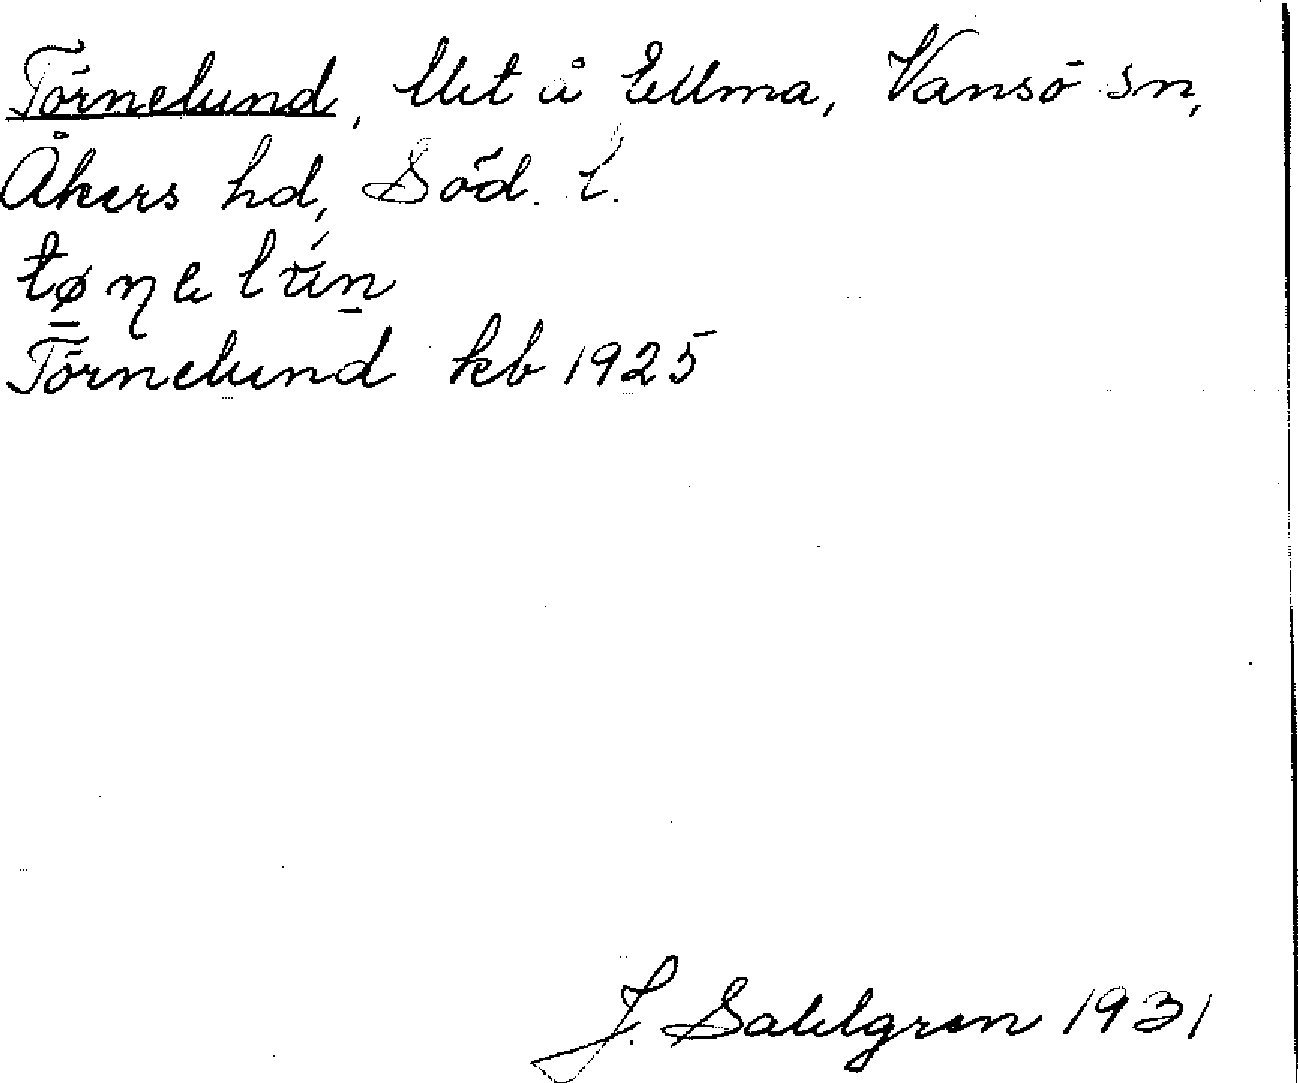 Törnelund, lht å Ellma, Vansö sn,
Åkers hd, Söd. l.
Törnelund kb 1925
J. Sahlgren 1931